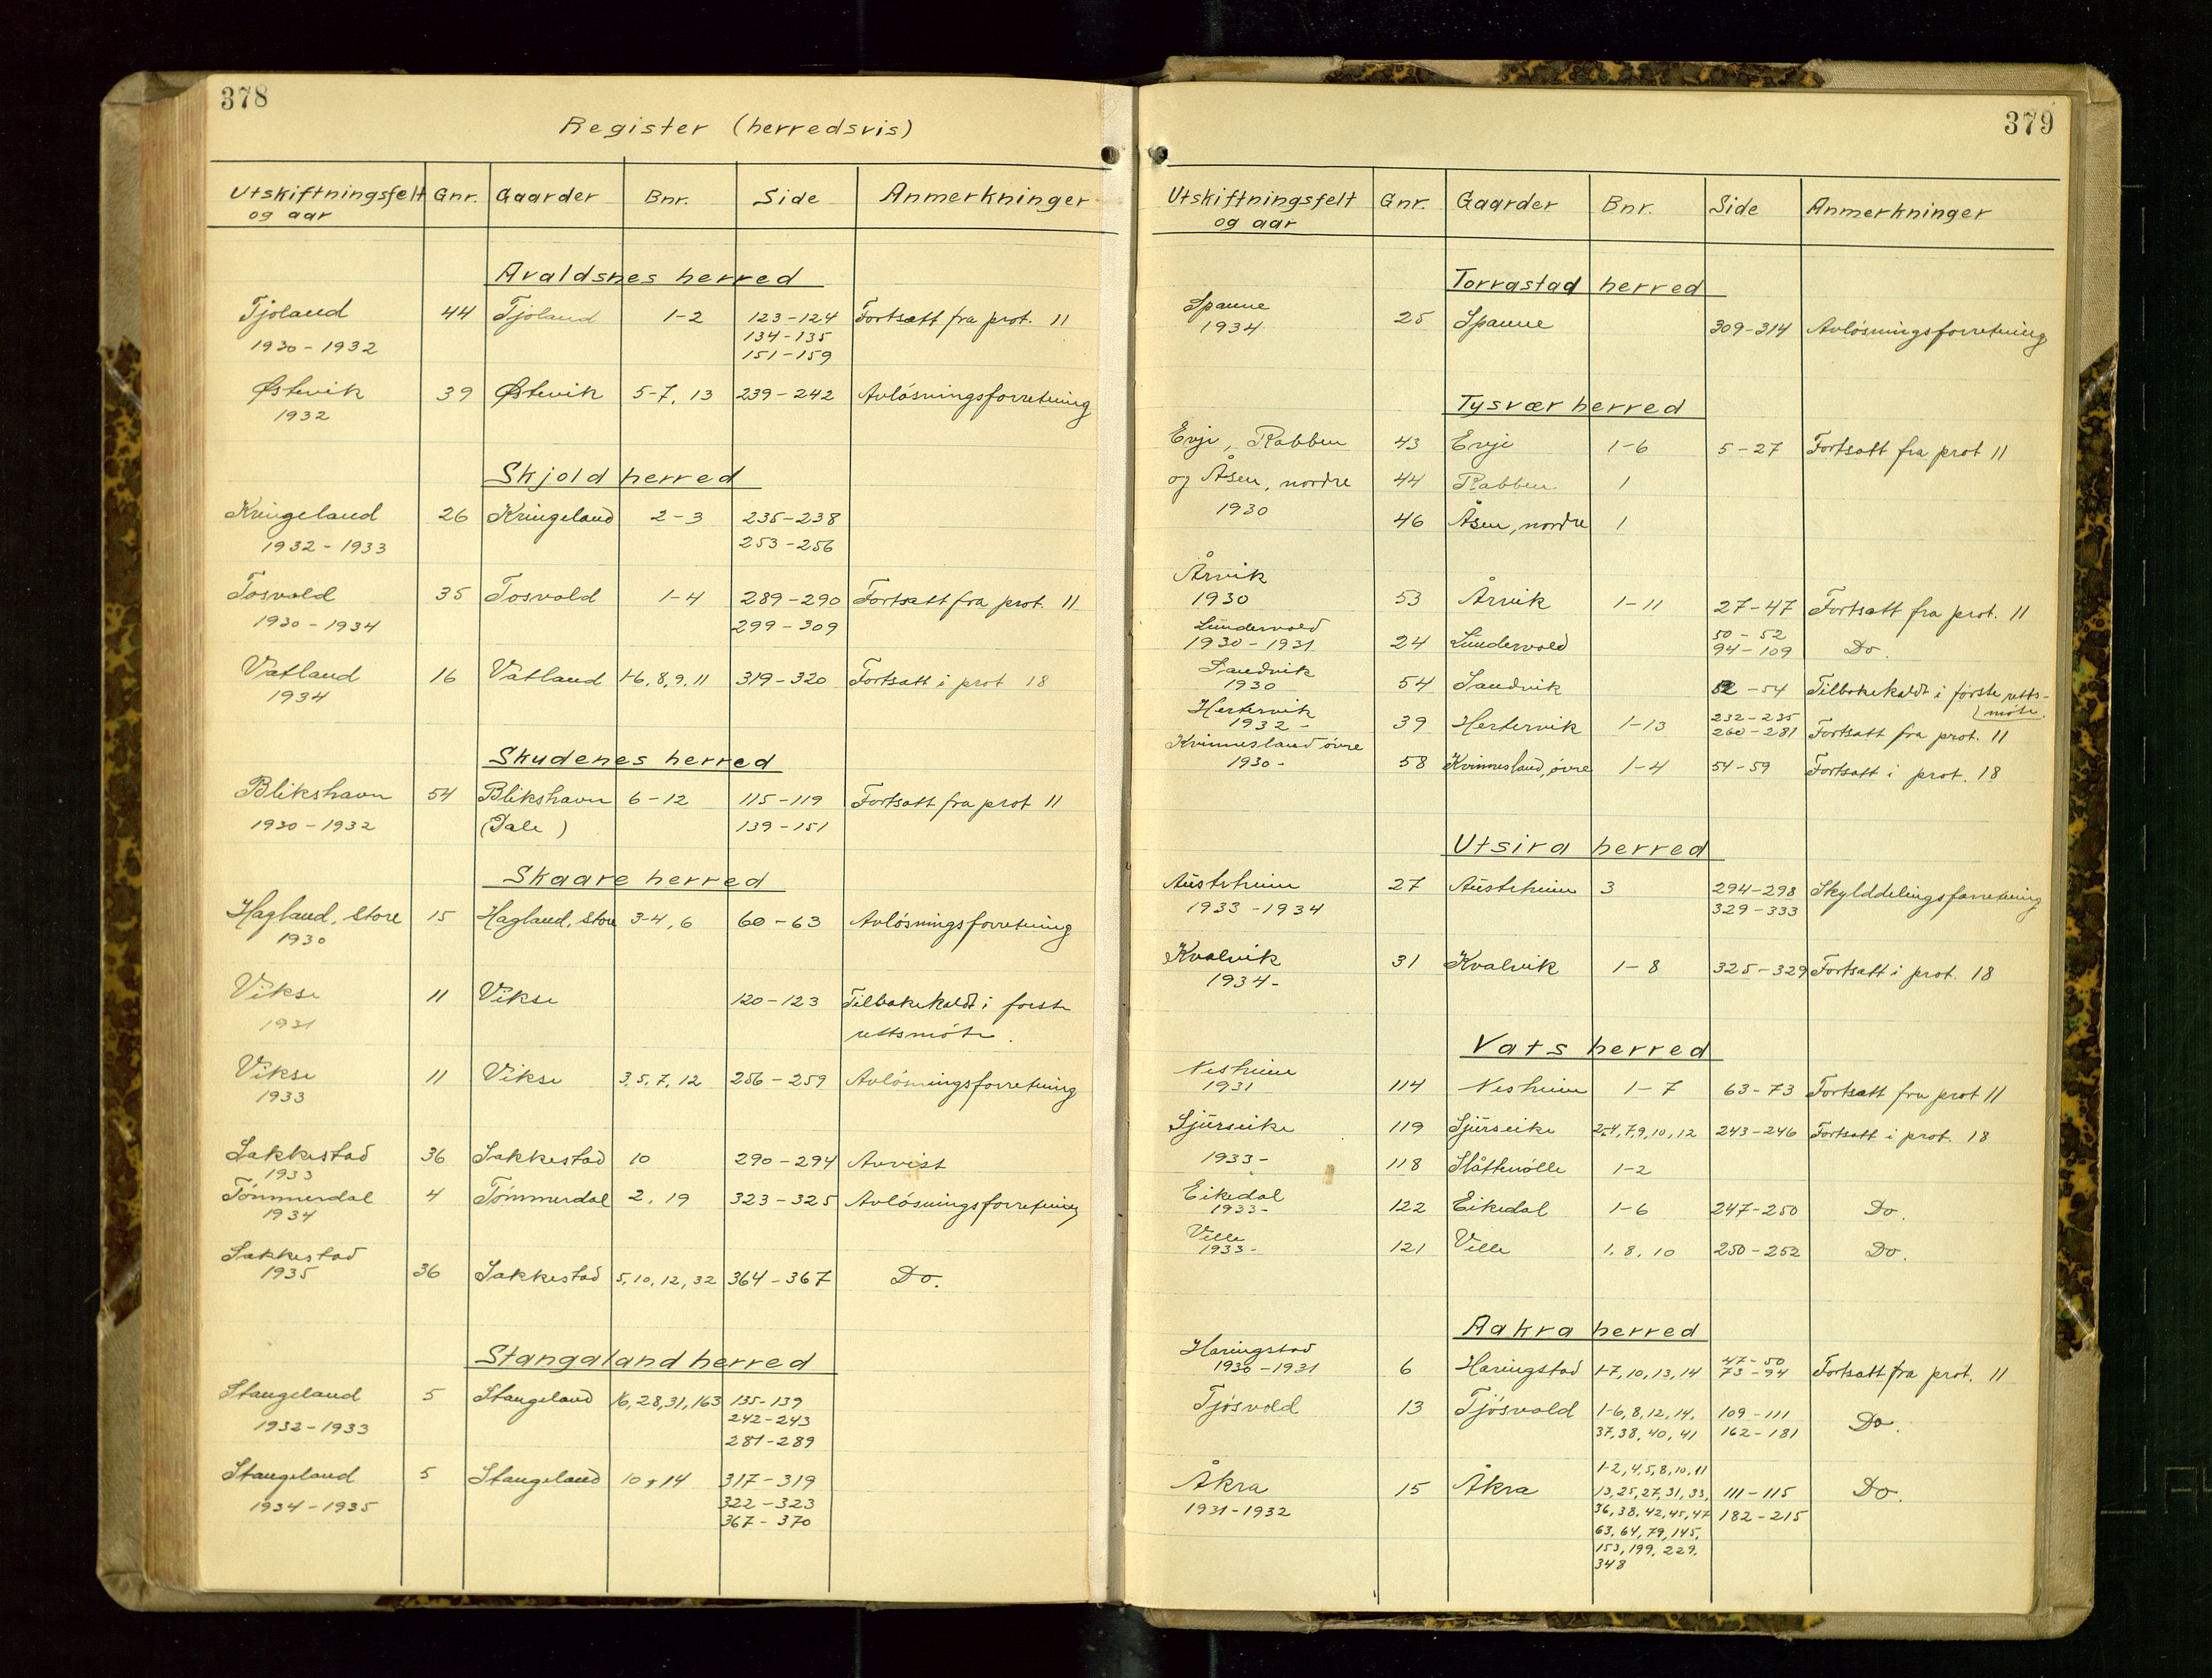 378
Register (herredsvis)
Utskiftningsfelt og aar Gnr. Gaarder Bnr. Side Anmerkninger
Avaldsnes herred
Tjoland 44 Tjoland 1-2 123-124 Fortsatt fra prot. 11
1930-1932 134-135
151-159
Østevik 39 Østevik 5-7, 13 239-242 Avløsningsforretning
1932
Skjold herred
Kringeland 26 Kringeland 2-3 235-238
1932-1933 253-256
Tosvold 35 Tosvold 1-4 289-290 Fortsatt fra prot. 11
1930-1934 299-309
Vatland 16 Vatland 1-6, 8, 9, 11 319-320 Fortsatt i prot 18
1934
Skudenes herred
Blikshavn 54 Blikshavn 6-12 115-119 Fortsatt fra prot 11
1930-1932 (Dale) 139-151
Skaare herred
Hagland, store 15 Hagland, store 3-4, 6 60-63 Avløsningsforretning
1930
Vikse 11 Vikse 120-123 Tilbakekaldt i forste
1931 rettsmøte.
Vikse 11 Vikse 3, 5, 7, 12 256-259 Avløsningsforretning
1933
Sakkestad 36 Sakkestad 10 290-294 Avvist
1933
Tømmerdal 4 Tømmerdal 2, 19 323-325 Avløsningsforretning
1934
Sakkestad 36 Sakkestad 5, 10, 12, 32 364-367 Do.
1935
Stangaland herred
Stangeland 5 Stangeland 16, 28, 31, 163 135-139
1932-1933 242-243
281-289
Stangeland 5 Stangeland 10, 14 317-319
1934-1935 322-323
367-370
379
Utskiftningsfelt og aar Gnr. Gaarder Bnr. Side Anmerkninger
Torvastad herred
Spanne 25 Spanne 309-314 Avløsningsforretning
1934
Tysvær herred
Evje, Rabben 43 Evje 1-6 5-27 Fortsatt fra prot 11
og Åsen, nordre 44 Rabben 1
1930 46 Åsen, nordre 1
Årvik
1930 53 Årvik 1-11 27-47 Fortsatt fra prot. 11
Lundervold 50-52
1930-1931 24 Lundervold 94-109 Do.
Sandvik
1930 54 Sandvik 52-54 Tilbakekaldt i første retts-
møte.
Hertervik 232-235
1932- 39 Hertervik 1-13 260-281 Fortsatt fra prot. 11
Kvinnesland øvre
1930- 58 Kvinnesland, øvre 1-4 54-59 Fortsatt i prot. 18
Utsira herred
Austrheim 27 Austrheim 3 294-298 Skylddelingsforretning
1933-1934 329-333
Kvalvik 31 Kvalvik 1-8 325-329 Fortsatt i prot. 18
1934-
Vats herred
Nesheim
1931 114 Nesheim 1-7 63-73 Fortsatt fra prot 11
Sjurseike 119 Sjurseike 2-4, 7, 9, 10, 12 243-246 Fortsatt i prot. 18
1933- 118 Slåttevølle 1-2
Eikedal
1933- 122 Eikedal 1-6 247-250 Do.
Ville
1933- 121 Ville 1, 8, 10 250-252 Do.
Aakra herred
Haringstad 47-50
1930-1931 6 Haringstad 1-7, 10, 13, 14 73-94 Fortsatt fra prot. 11
Tjøsvold 13 Tjøsvold 1-6, 8, 12, 14, 109-111 Do.
37, 38, 40, 41 162-181
1-2, 4, 5, 8, 10, 11
Åkra 15 Åkra 13, 25, 27, 31, 33, 111-115 Do.
1931-1932 36, 38, 42, 45, 47 182-215
63, 64, 79, 145,
153, 199, 229,
348